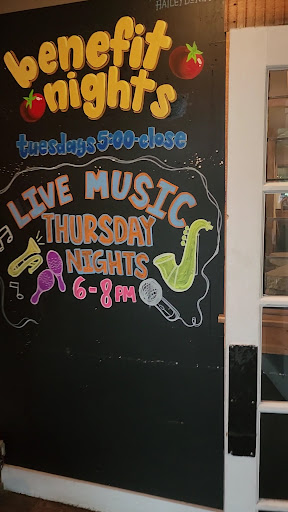 HAILEY
benefit
nights
tuesdays 5:00-close
LIVE MUSIC
THURSDAY
NIGHTS
6-8PM